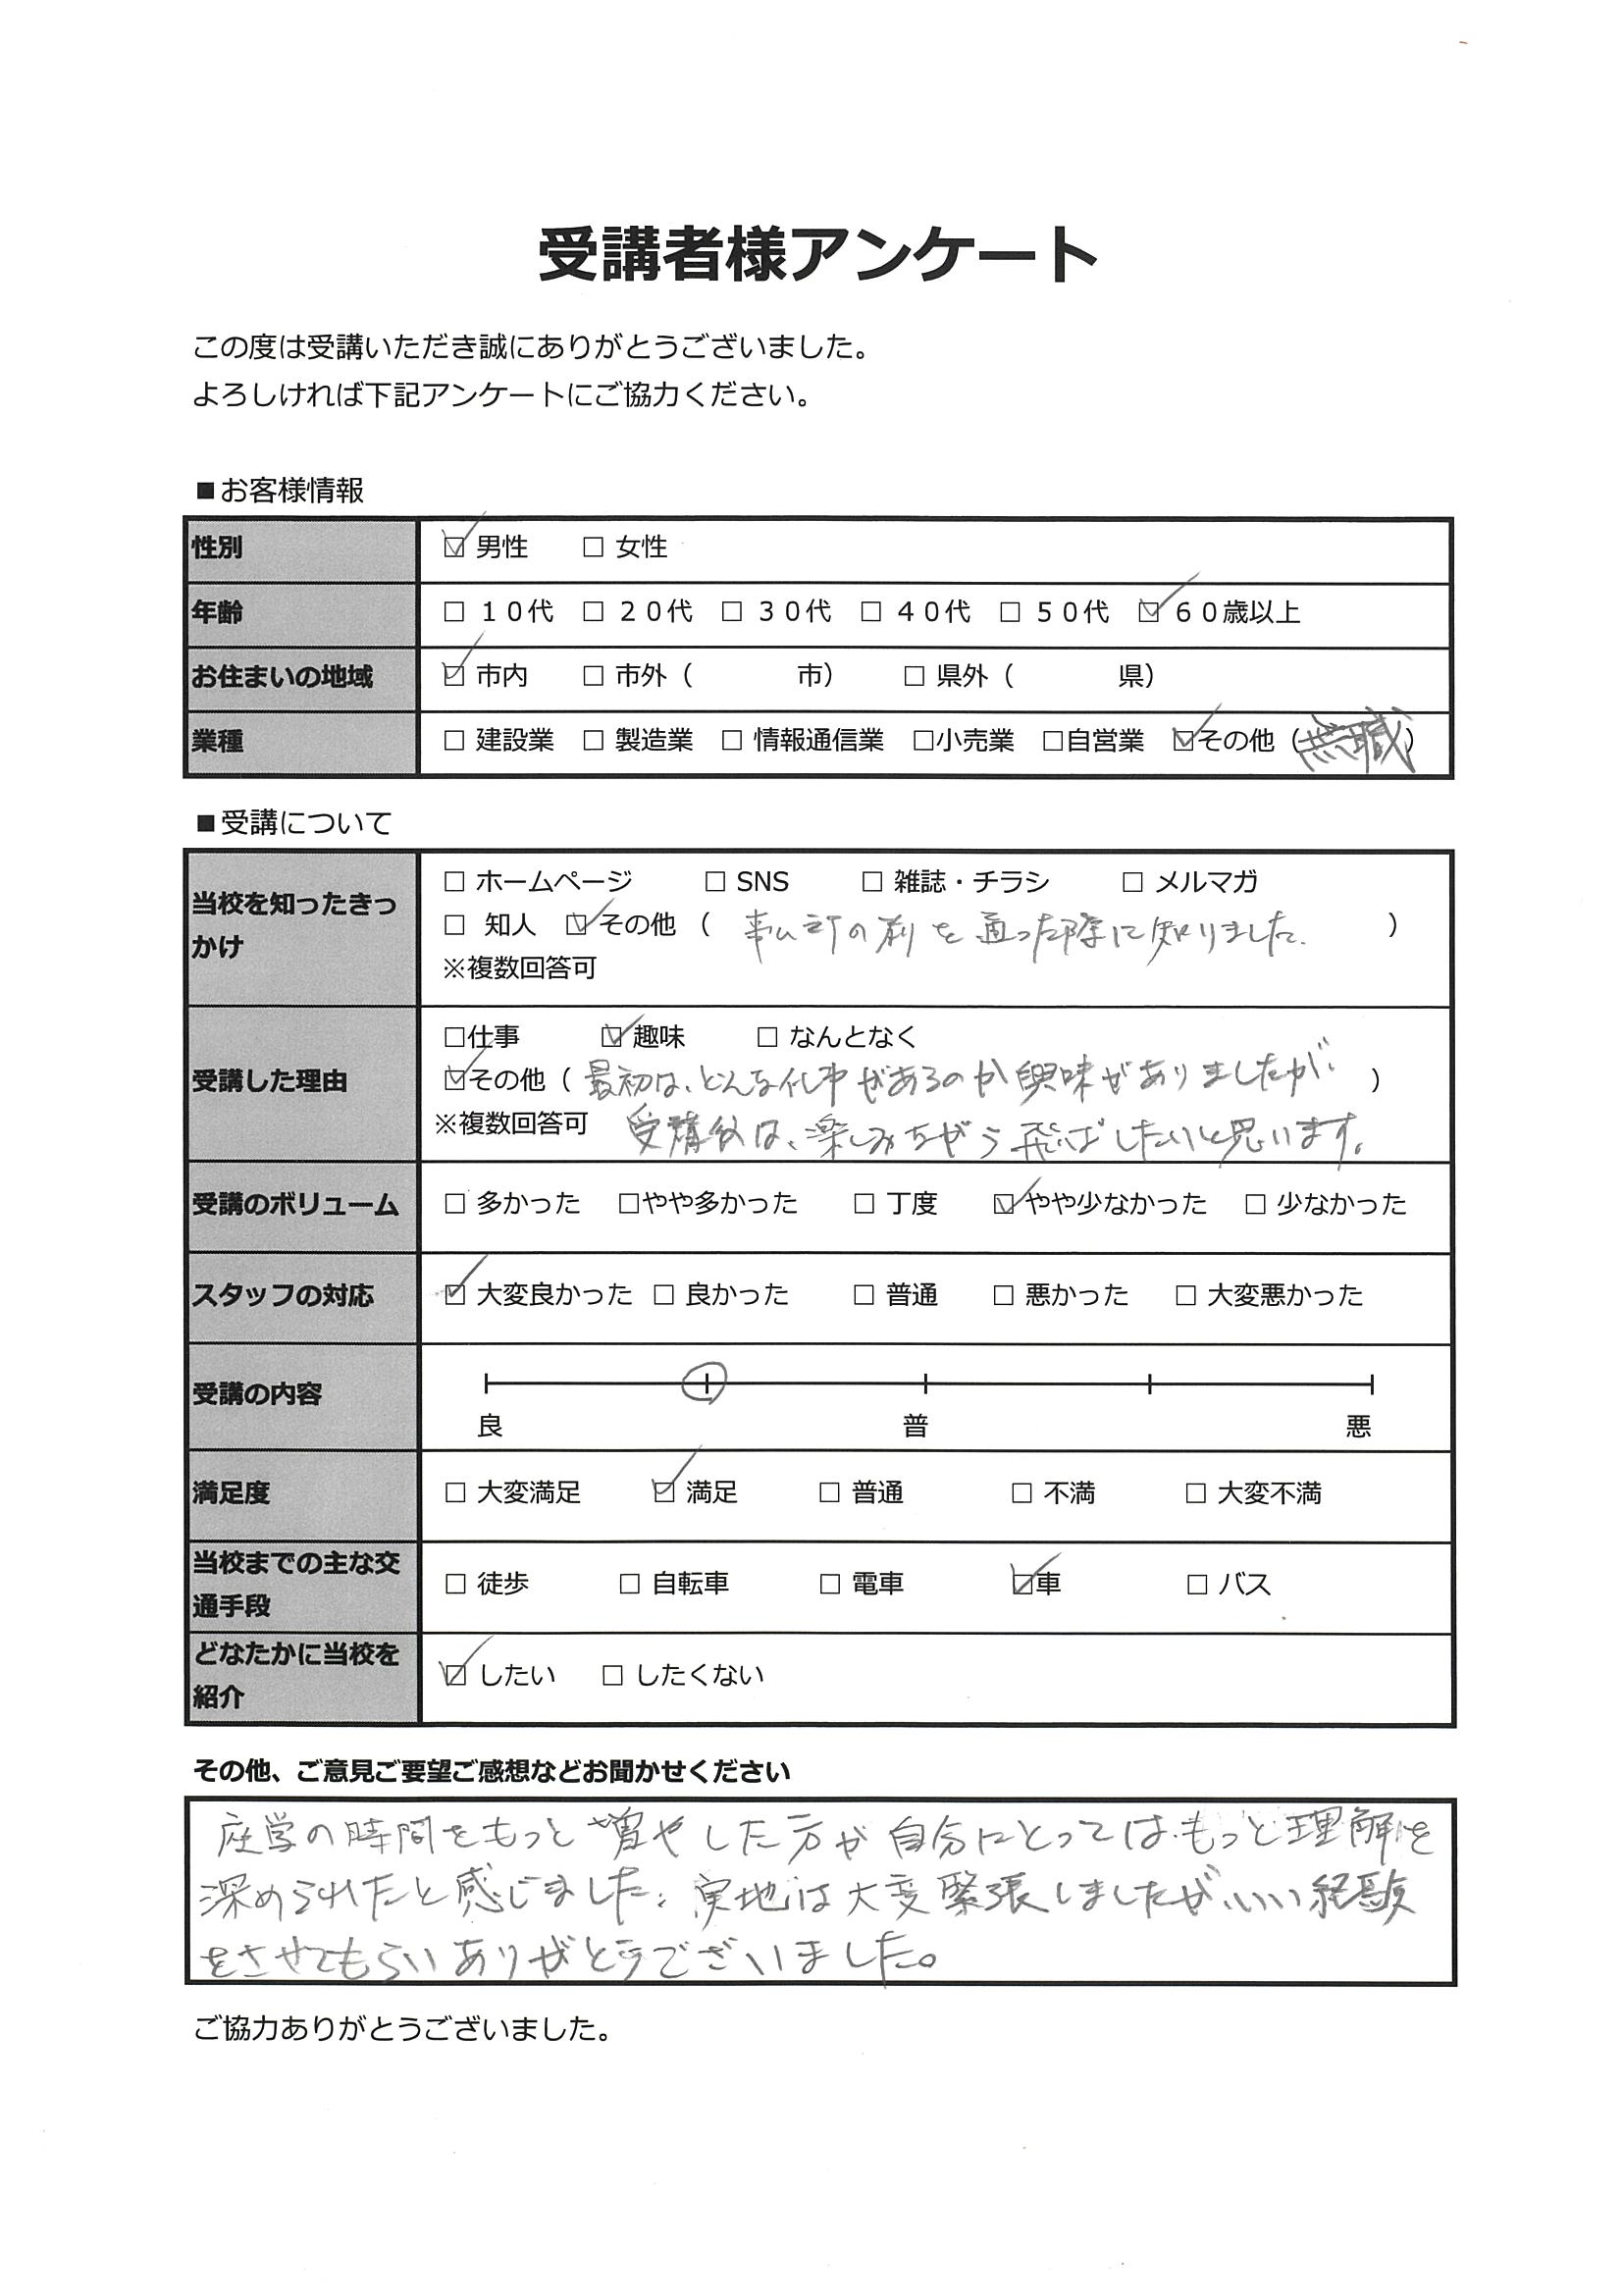 受講者様アンケート
この度は受講いただき誠にありがとうございました。
よろしければ下記アンケートにご協力ください。
■お客様情報
性別 ☑ 男性 □ 女性
年齢 □ 10代 □ 20代 □ 30代 □ 40代 □ 50代 ☑ 60歳以上
お住まいの地域 ☑ 市内 □ 市外（ 市） □ 県外（ 県）
業種 □ 建設業 □ 製造業 □ 情報通信業 □小売業 □自営業 ☑その他（無職）
■受講について
当校を知ったきっ
かけ
□ ホームページ □ SNS □ 雑誌・チラシ □ メルマガ
□ 知人 ☑ その他（ の前を通った際に知りました. ）
※複数回答可
受講した理由
□仕事 ☑ 趣味 □ なんとなく
☑その他（ 最初は、どんな仕事があるのか興味がありましたが、 ）
※複数回答可 受講後は、楽しみながら飛ばしたいと思います。
受講のボリューム □ 多かった □やや多かった □ 丁度 ☑ やや少なかった □ 少なかった
スタッフの対応 ☑ 大変良かった □ 良かった □ 普通 □ 悪かった □ 大変悪かった
受講の内容 良 普 悪
満足度 □ 大変満足 ☑ 満足 □ 普通 □ 不満 □ 大変不満
当校までの主な交
通手段
□ 徒歩 □ 自転車 □ 電車 ☑車 □ バス
どなたかに当校を
紹介
☑ したい □ したくない
その他、ご意見ご要望ご感想などお聞かせください
座学の時間をもっと増やした方が自分にとってはもっと理解を
深められたと感じました。実地は大変緊張しましたがいい経験
をさせてもらいありがとうございました。
ご協力ありがとうございました。